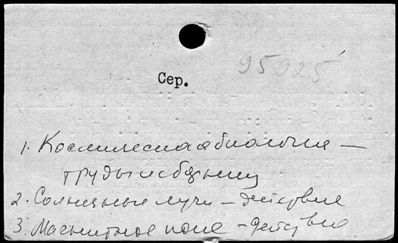 95925
Сер.
1. Космическая биология —
труды и сборники
2. Солнечные лучи — действие
3. Магнитное поле — действие